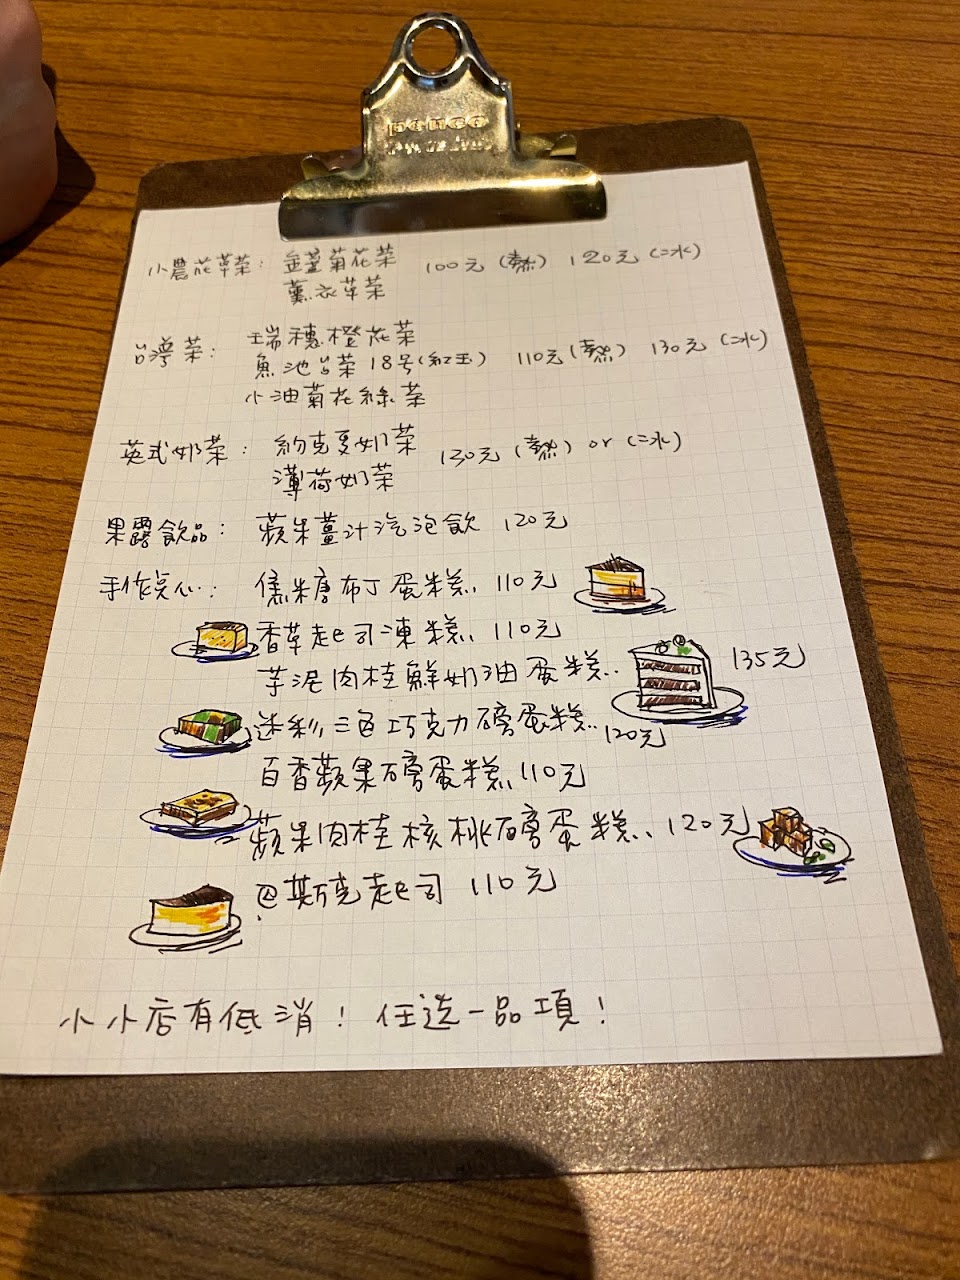 penco
小農花草茶: 金萱菊花茶 100元(熱) 120元(冰)
薰衣草茶
台灣茶: 瑞穗橙花茶
魚池台茶18号(紅玉) 110元(熱) 130元(冰)
小油菊花綠茶
英式奶茶: 約克夏奶茶 130元(熱)or(冰)
薄荷奶茶
果露飲品: 蘋果薑汁汽泡飲 120元
手作点心: 焦糖布丁蛋糕 110元
香草起司凍糕 110元
芋泥肉桂鮮奶油蛋糕 135元
迷彩三色巧克力磅蛋糕 120元
百香蘋果磅蛋糕 110元
蘋果肉桂核桃磅蛋糕 120元
巴斯克起司 110元
小小店有低消! 任选一品項!